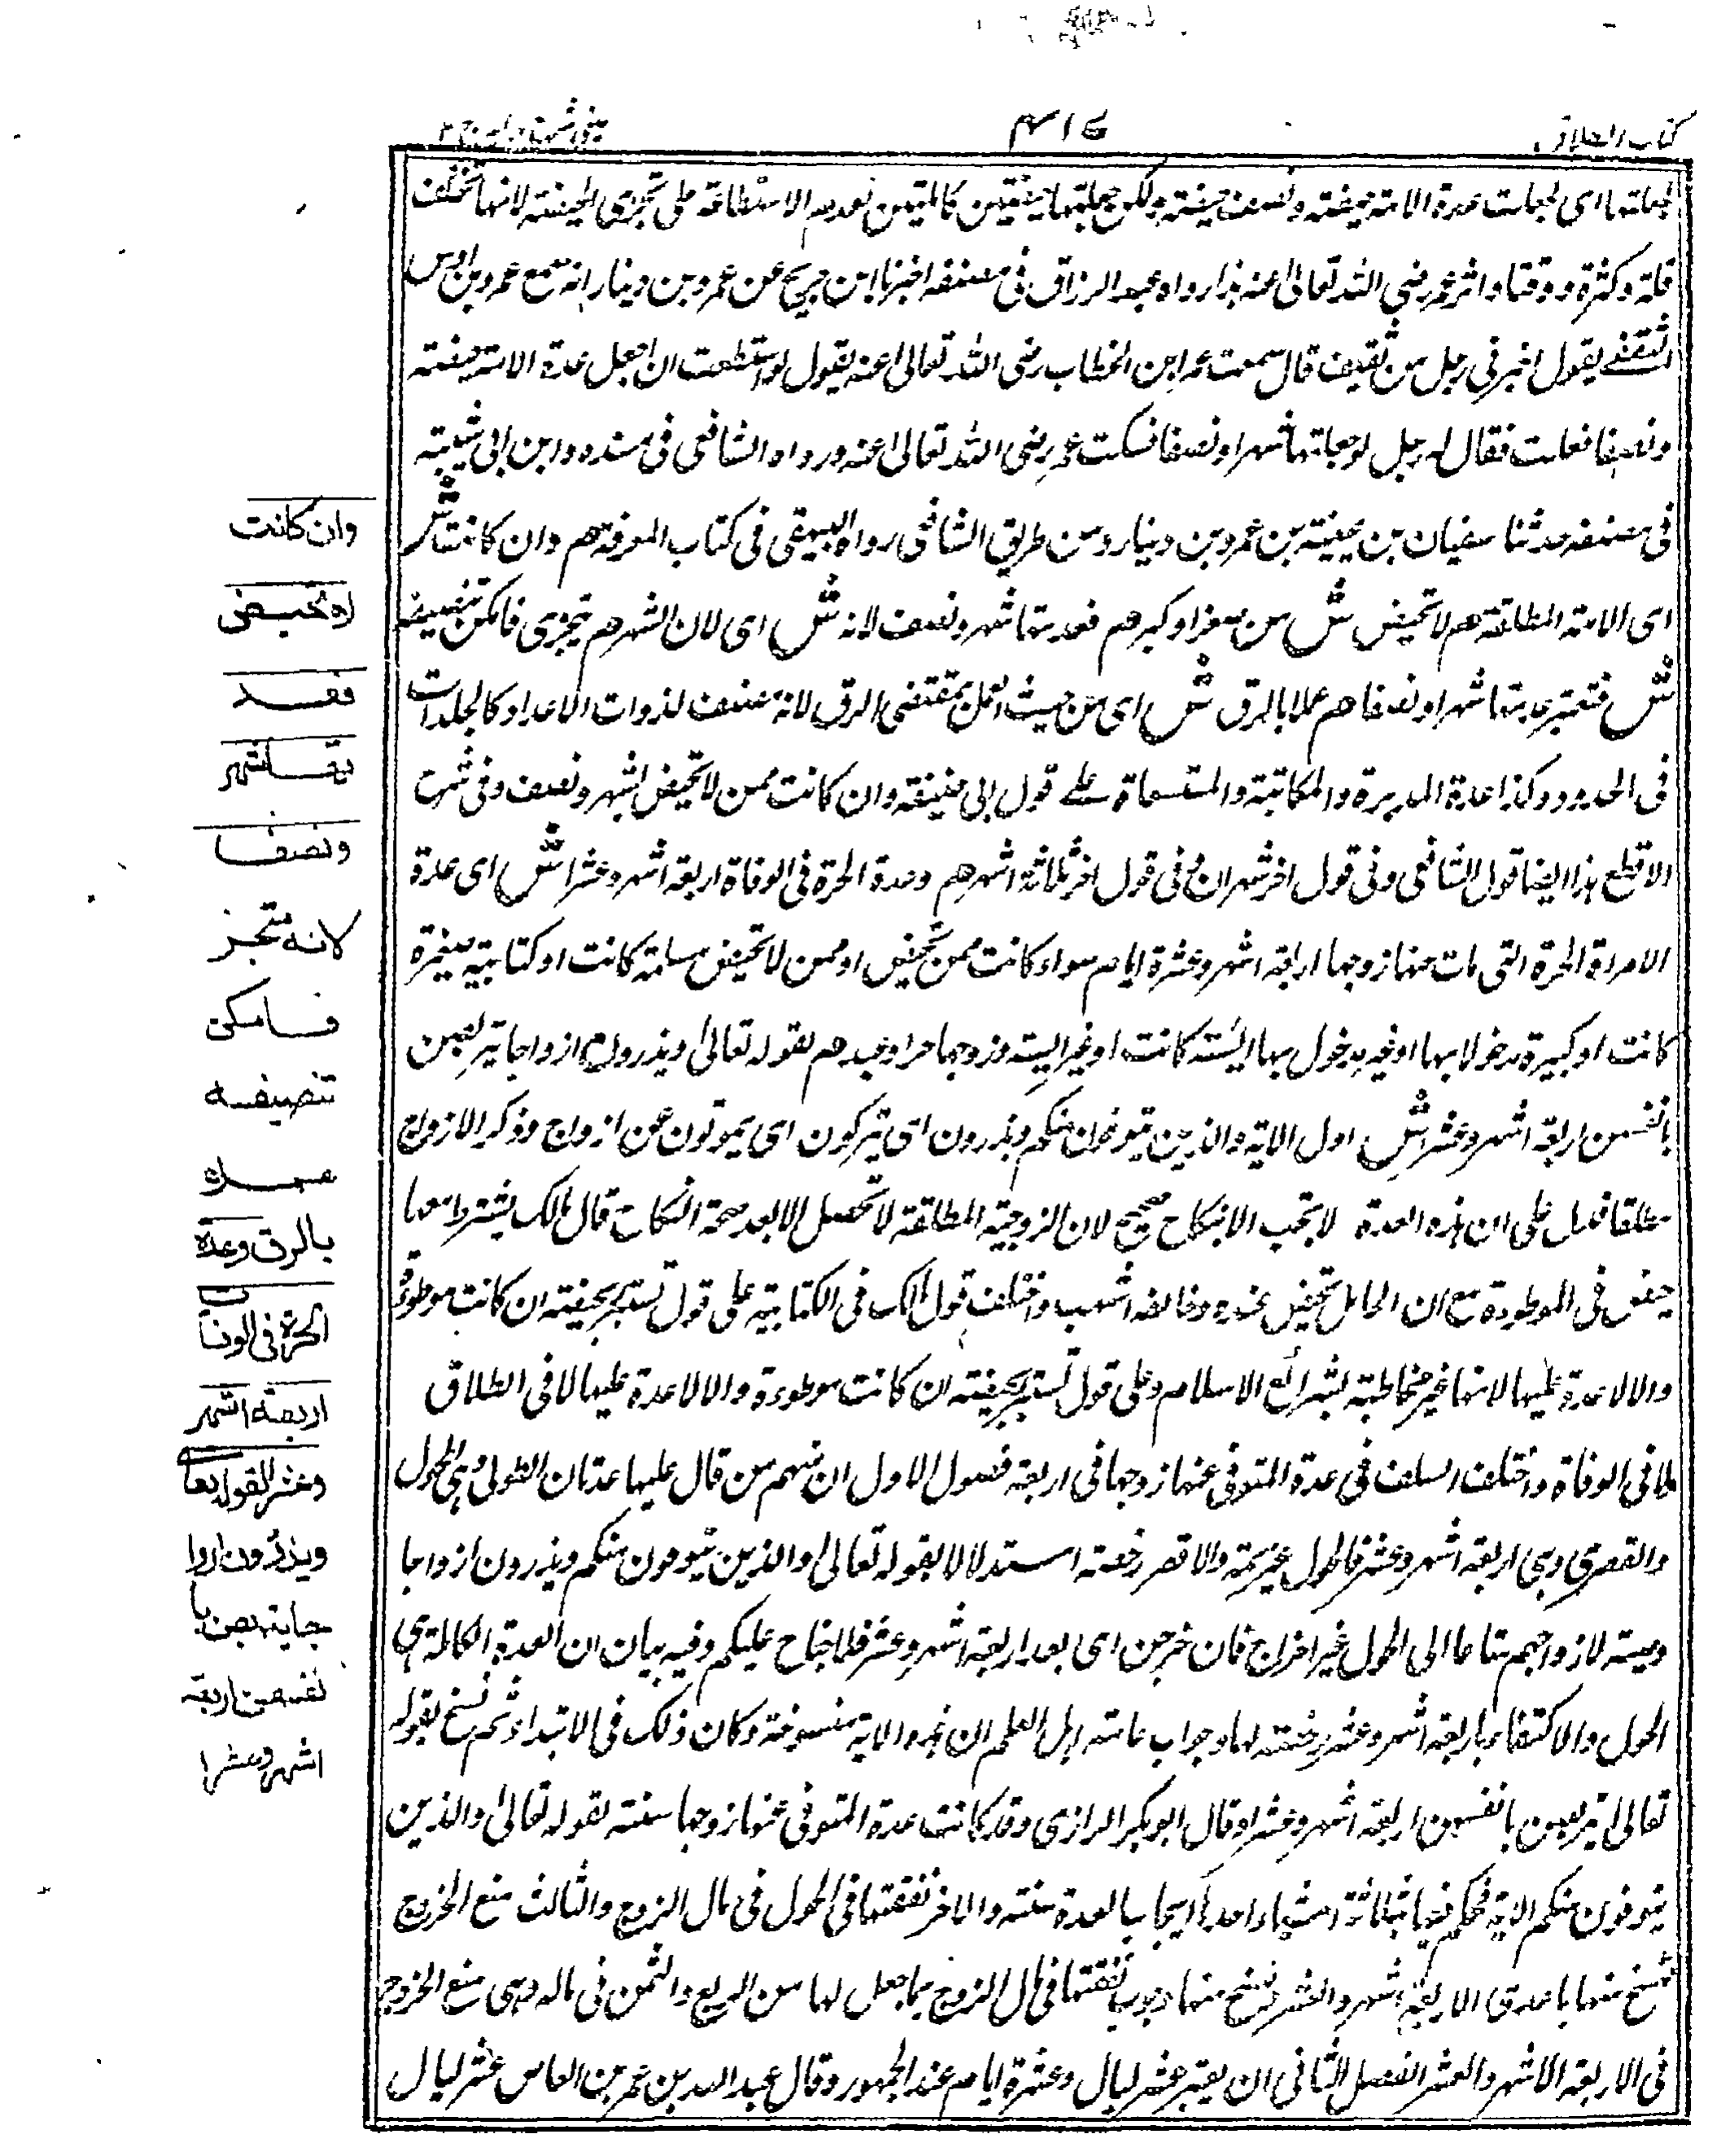 كتاب الطلاق
٤١٧
لجعلتها اى لجعلت عدة الامة حيضة ونصف حيضة ولكن جعلتها حيضتين كاملتين لعدم الاستطاعة على تجزى الحيضة لانها تختلف
قلة وكثرة ووقتا واثر عمر رضى الله تعالى عنه هذا رواه عبد الرزاق فى مصنفه اخبرنا ابن جريج عن عمرو بن دينار انه سمع عمرو بن اوس
الثقفى يقول اخبرنى رجل من ثقيف قال سمعت عمر ابن الخطاب رضى الله تعالى عنه يقول لو استطعت ان اجعل عدة الامة حيضة
ونصفا فعلت فقال له رجل لو جعلتها شهرا ونصفا فسكت عمر رضى الله تعالى عنه ورواه الشافعى فى مسنده وابن ابى شيبة
فى مصنفه حدثنا سفيان بن عيينة بن عمرو بن دينار ومن طريق الشافعى رواه البيهقى فى كتاب المعرفة هم وان كانت ش
اى الامة المطلقة هم لا تحيض ش من صغر او كبر هم فعدتها شهر ونصف لانه ش اى لان الشهر هم متجزى فامكن تنصيفه
ش فتعتبر عدتها شهرا ونصفا هم عملا بالرق ش اى من حيث العمل بمقتضى الرق لانه منصف لذوات الاعداد كالجلدات
فى الحدود وكذا عدة المدبرة والمكاتبة والمستسعاة على قول ابى حنيفة وان كانت ممن لا تحيض شهر ونصف وفى شرح
الاقطع هذا ايضا قول الشافعى وفى قول اخر شهران وفى قول اخر ثلاثة اشهر هم وعدة الحرة فى الوفاة اربعة اشهر وعشرا ش اى عدة
الامراة الحرة التى مات عنها زوجها اربعة اشهر وعشرة ايام سواء كانت ممن تحيض او ممن لا تحيض مسلمة كانت او كتابية صغيرة
كانت او كبيرة مدخولا بها او غير مدخول بها اٰيسة كانت او غير اٰيسة وزوجها حر او عبد هم لقوله تعالى ويذرون ازواجا يتربصن
بانفسهن اربعة اشهر وعشرا ش اول الاية والذين يتوفون منكم ويذرون اى يتركون اى يموتون عن ازواج وذكر الازواج
مطلقا فدل على ان هذه العدة لا تجب الا بنكاح صحيح لان الزوجية المطلقة لا تحصل الا بعد صحة النكاح قال مالك يشترط معها
حيض فى الموطوءة مع ان الحامل تحيض عنده وخالفه اشهب واختلف قول مالك فى الكتابية على قول تستبرئ بحيضة ان كانت موطوءة
والا لا عدة عليها لانها غير مخاطبة بشرائع الاسلام وعلى قول تستبرئ بحيضة ان كانت موطوءة والا لا عدة عليها لا فى الطلاق
لا فى الوفاة واختلف السلف فى عدة المتوفى عنها زوجها فى اربعة فصول الاول ان منهم من قال عليها عدتان الطولى وهى الحول
والقصرى وهى اربعة اشهر وعشر فالحول عزيمة والاقصر رخصة استدلالا بقوله تعالى والذين يتوفون منكم ويذرون ازواجا
وصية لازواجهم متاعا الى الحول غير اخراج فان خرجن اى بعد اربعة اشهر وعشر فلا جناح عليكم وفيه بيان ان العدة الكاملة هى
الحول والاكتفاء باربعة اشهر وعشر رخصة لها وجواب عامة اهل العلم ان هذه الاية منسوخة وكان ذلك فى الابتداء ثم نسخ بقوله
تعالى يتربصن بانفسهن اربعة اشهر وعشرا وقال ابو بكر الرازى وقد كانت عدة المتوفى عنها زوجها سنة لقوله تعالى والذين
يتوفون منكم الاية فحكم فيها بثلاثة اشياء احدها ايجاب العدة سنة والاخر نفقتها فى الحول فى مال الزوج والثالث منع الخروج
نسخ منها ما عدى الاربعة اشهر والعشر ونسخ منها وجوب نفقتها فى مال الزوج بما جعل لها من الربع والثمن فى ماله وبقى منع الخروج
فى الاربعة الاشهر والعشر الفصل الثانى ان يعتبر عشر ليال وعشرة ايام عند الجمهور وقال عبد الله بن عمر بن العاص عشر ليال
وان كانت
لا تحيض
فعد
تها شهر
ونصفا
لانه متجز
فامكن
تنصيفه
عملا
بالرق وعدة
الحرة فى الوفاة
اربعة اشهر
وعشر لقوله تعا
ويذرون ازوا
جا يتربصن با
نفسهن اربعة
اشهر وعشرا